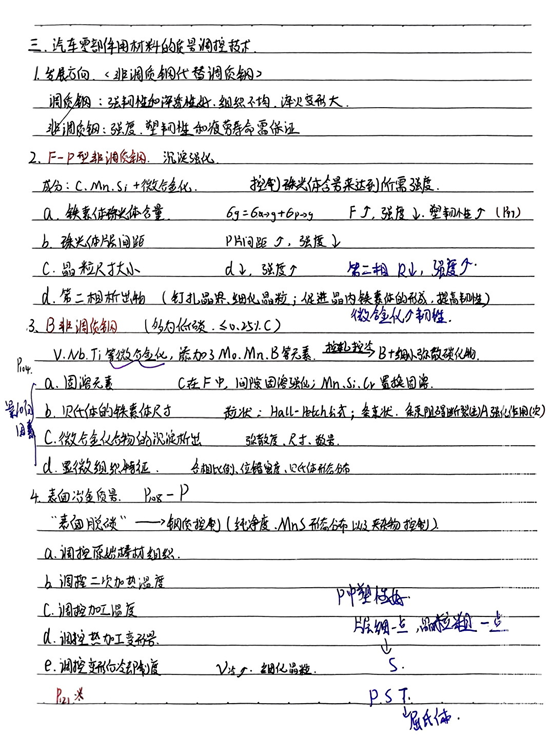 三. 汽车零部件用材料的质量调控技术.
1. 发展方向. <非调质钢代替调质钢>
调质钢：强韧性和淬透性好. 组织不均. 淬火变形大.
非调质钢：强度. 塑韧性和疲劳寿命需保证
2. F-P型非调质钢. 沉淀强化.
成分：C. Mn. Si + 微合金化. 控制珠光体含量来达到所需强度.
a. 铁素体珠光体含量. F↑, 强度↓. 塑韧性↑
b. 珠光体片层间距 P片间距↑, 强度↓
c. 晶粒尺寸大小 d↓, 强度↑ 第二相 R↓, 强度↑.
d. 第二相析出物 (钉扎晶界、细化晶粒；促进晶内铁素体的形成, 提高韧性)
微合金化↑韧性.
3. B非调质钢 (多为低碳. ≤0.25%C)
V. Nb. Ti等微合金化, 添加了Mo. Mn. B等元素. 控轧控冷 B+细小弥散碳化物.
P104.
影响因素
a. 固溶元素 C在F中, 间隙固溶强化; Mn. Si. Cr 置换固溶.
b. 贝氏体的铁素体尺寸 粒状: Hall-Petch公式;
c. 微合金化合物的沉淀析出 弥散度、尺寸、数量.
d. 显微组织特征. 各相比例、位错密度、贝氏体形态分布
4. 表面冶金质量. P108-P
"表面脱碳" → 钢质控制 (纯净度. MnS形态分布以及夹杂物控制).
a. 调控原始棒材组织.
b. 调控二次加热温度
c. 调控加工温度
d. 调控热加工变形量.
e. 调控变形后冷却制度 V冷↑. 细化晶粒.
P121 ※
P中塑性好
片层细一点, 晶粒粗一点
↓
S.
P S T.
↓屈氏体.